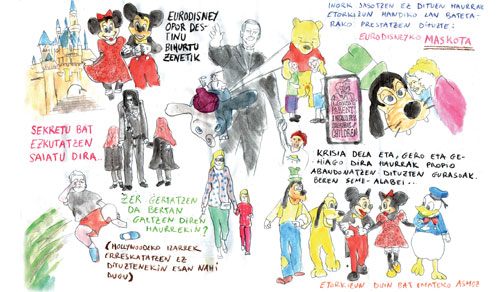 EURODISNEY
OPOR DES-
TINU
BIHURTU
ZENETIK
SEKRETU BAT
EZKUTATZEN
SAIATU DIRA..
ZER GERTATZEN
DA BERTAN
GALTZEN DIREN
HAURREKIN?
(HOLLYWOODEKO IZARREK
ERRESKATATZEN EZ
DITUZTENEKIN ESAN NAHI
DUGU)
INORK JASOTZEN EZ DITUEN HAURRAK
ETORKIZUN HANDIKO LAN BATETA-
RAKO PRESTATZEN DITUZTE:
EURODISNEYKO MASKOTA
PARENT
CHILDREN
KRISIA DELA ETA, GERO ETA GE-
HIAGO DIRA HAURRAK PROPIO
ABANDONATZEN DITUZTEN GURASOAK.
BEREN SEME-ALABEI...
ETORKIZUN DUIN BAT EMATEKO ASMOZ